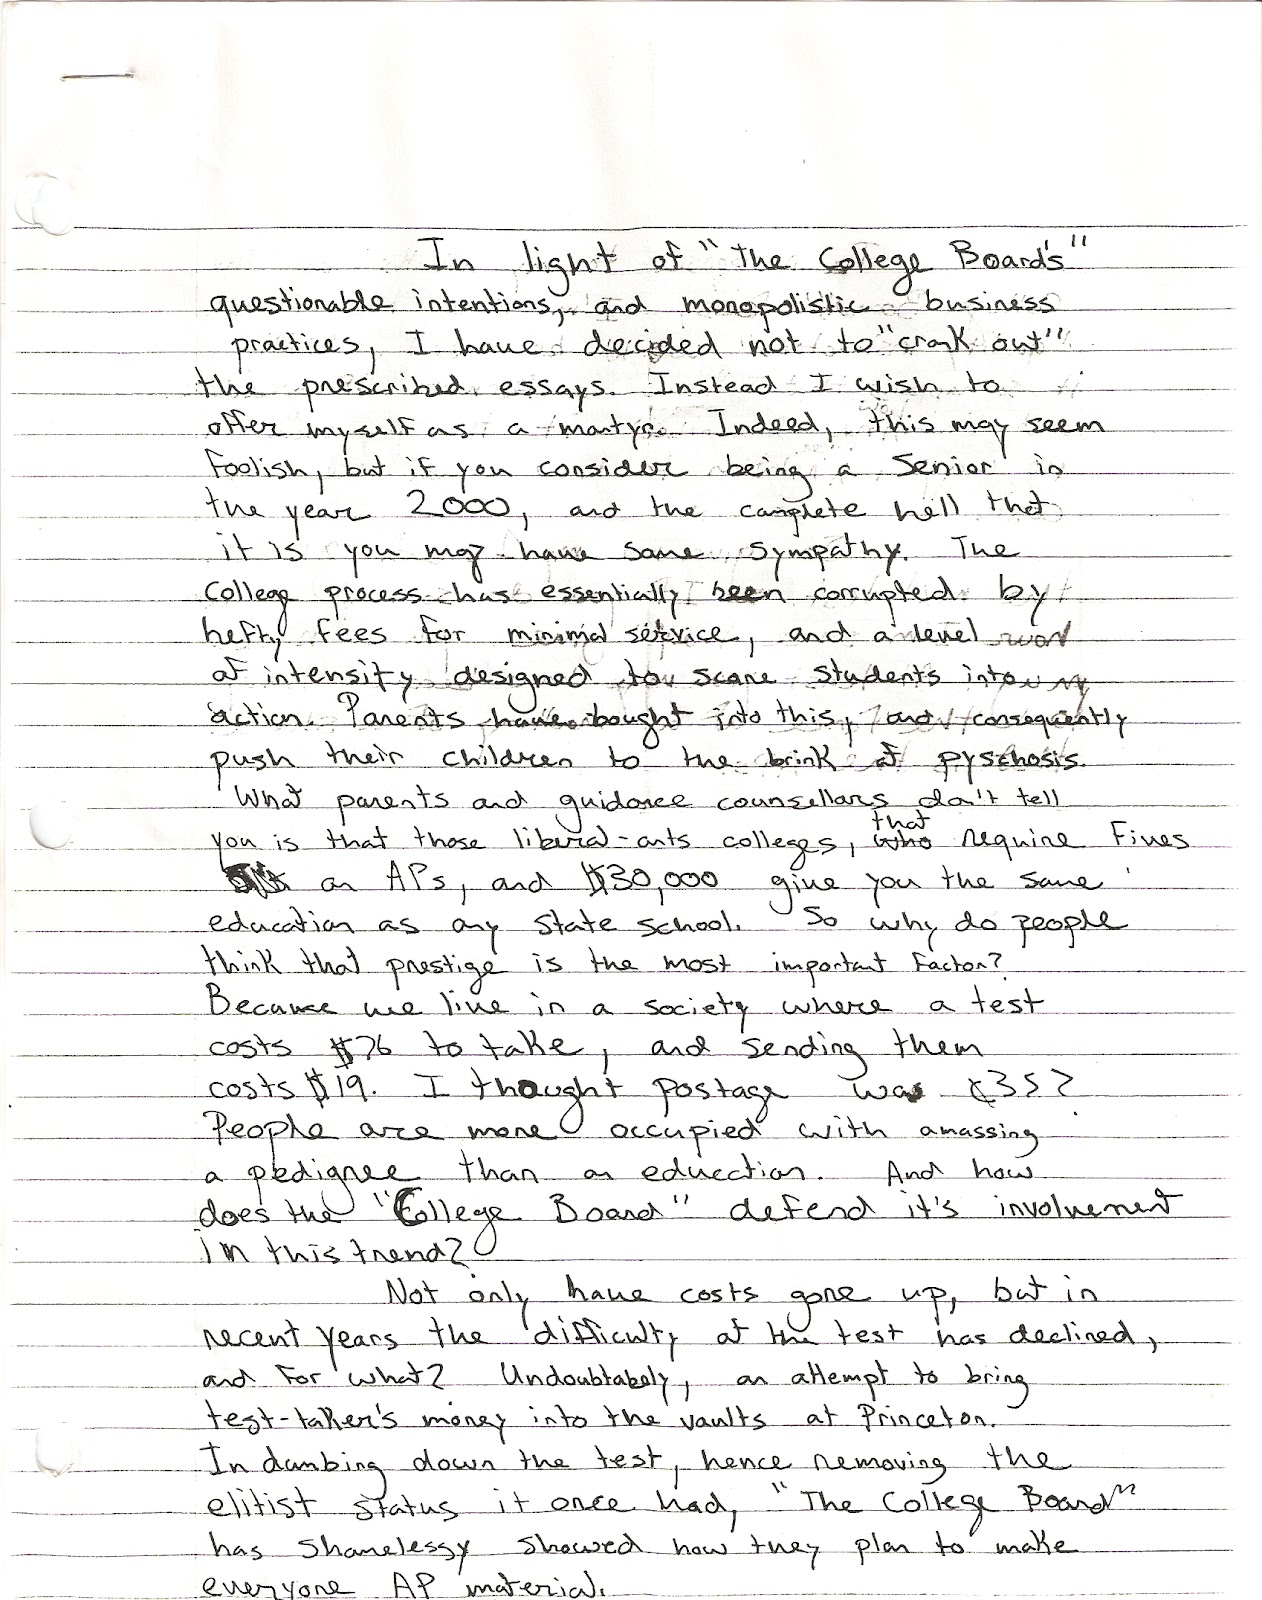 In light of "The College Board's"
questionable intentions, and monopolistic business
practices, I have decided not to "crank out"
the prescribed essays. Instead I wish to
offer myself as a martyr. Indeed, this may seem
foolish, but if you consider being a Senior in
the year 2000, and the complete hell that
it is you may have some sympathy. The
College process has essentially been corrupted by
hefty fees for minimal service, and a level
of intensity designed to scare students into
action. Parents have bought into this, and consequently
push their children to the brink of pyschosis.
What parents and guidance counsellors don't tell
you is that those liberal-arts colleges, that require Fives
on APs, and $30,000 give you the same
education as any state school. So why do people
think that prestige is the most important factor?
Because we live in a society where a test
costs $76 to take, and sending them
costs $19. I thought postage was ¢35?
People are more occupied with amassing
a pedigree than an education. And how
does the "College Board" defend it's involvement
in this trend?
Not only have costs gone up, but in
recent years the difficulty of the test has declined,
and for what? Undoubtabely, an attempt to bring
test-taker's money into the vaults at Princeton.
In dumbing down the test, hence removing the
elitist status it once had, "The College Board"
has shamelessy showed how they plan to make
everyone AP material.